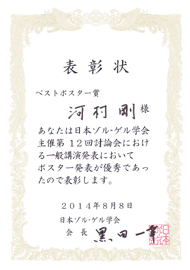 表彰状
ベストポスター賞
河村 剛 様
あなたは日本ゾル-ゲル学会
主催第 12回討論会におけ
る一般講演発表において
ポスター発表が優秀であっ
たので表彰します。
2014年8月8日
日本ゾル-ゲル学会
会 長 黒田一幸